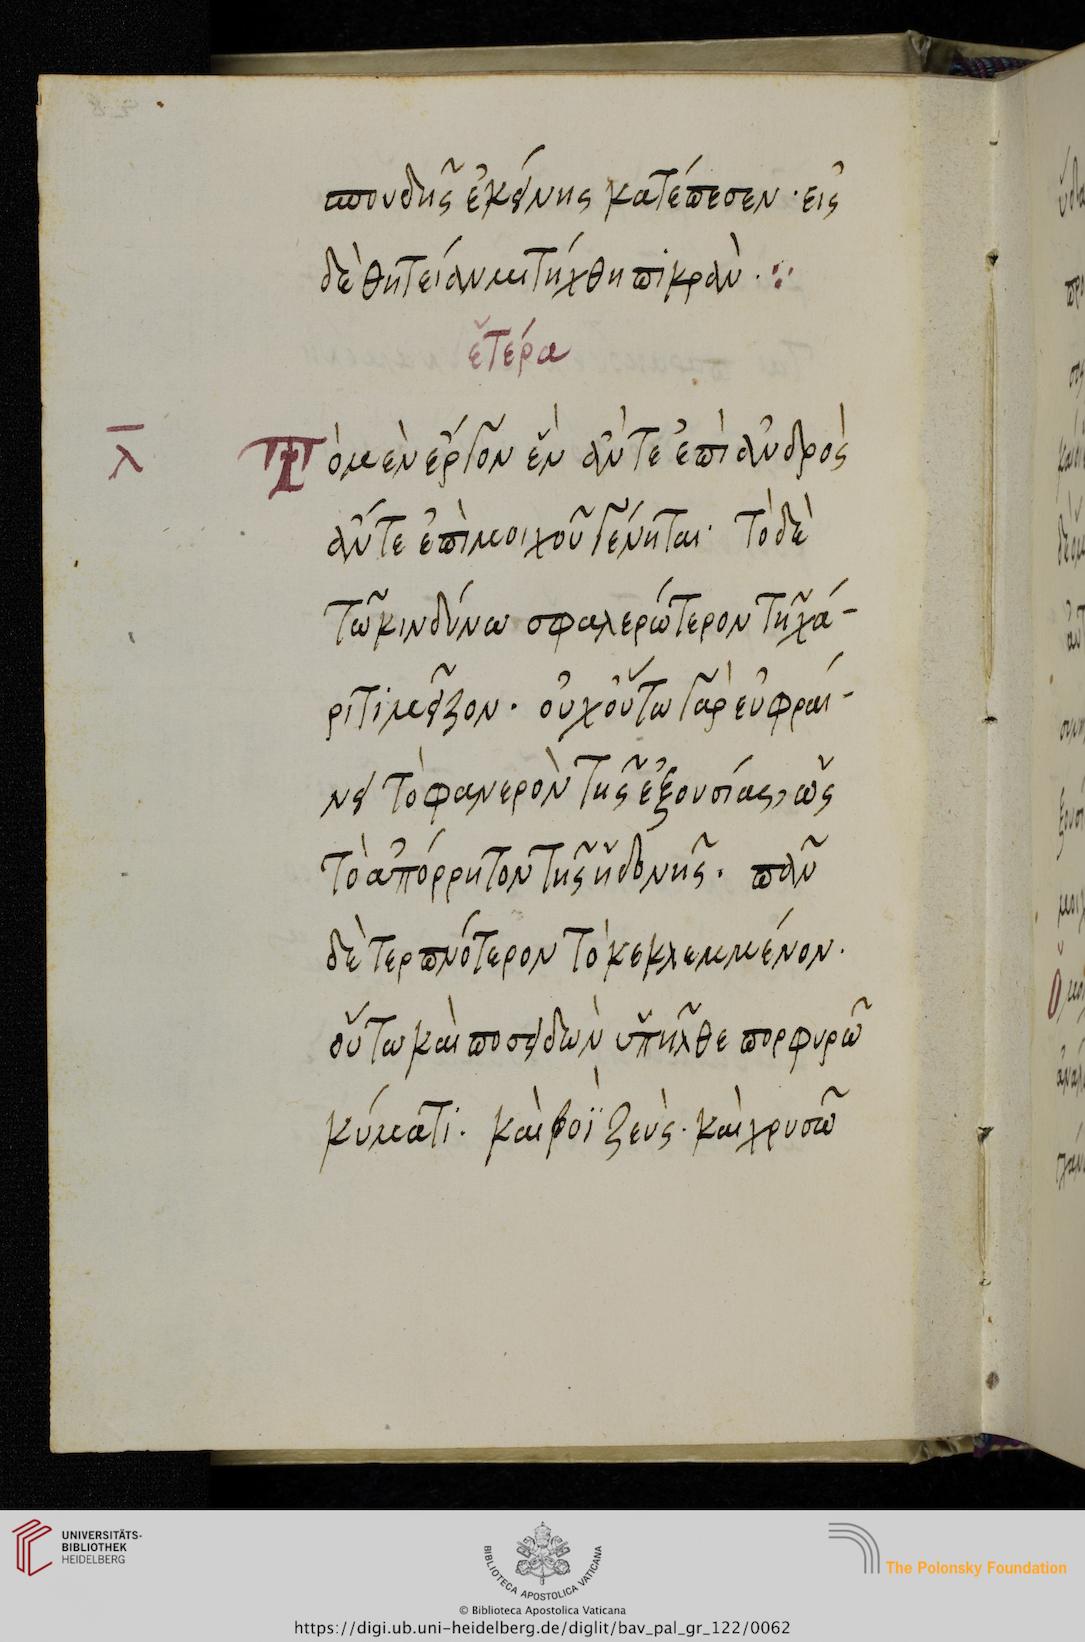 σπουδῆς ἐκείνης κατέπεσεν· εἰς
δὲ θητείαν κατήχθη πικράν.
ἑτέρα
λ Τὸ μὲν ἔργον ἓν ἄν τε ἐπὶ ἀνδρὸς
ἄν τε ἐπὶ μοιχοῦ γένηται· τὸ δὲ
τῶ κινδύνω σφαλερώτερον τῆ χά-
ριτι μεῖζον. οὐχ οὕτω γὰρ εὐφραί-
νει τὸ φανερὸν τῆς ἐξουσίας, ὡς
τὸ ἀπόρρητον τῆς ἡδονῆς. πᾶν
δὲ τερπνότερον τὸ κεκλεμμένον.
οὕτω καὶ ποσειδῶν ὑπῆλθε πορφυρῶ
κύματι. καὶ βοῒ ζεύς. καὶ χρυσῶ
UNIVERSITÄTS-
BIBLIOTHEK
HEIDELBERG
BIBLIOTECA APOSTOLICA VATICANA
The Polonsky Foundation
© Biblioteca Apostolica Vaticana
https://digi.ub.uni-heidelberg.de/diglit/bav_pal_gr_122/0062